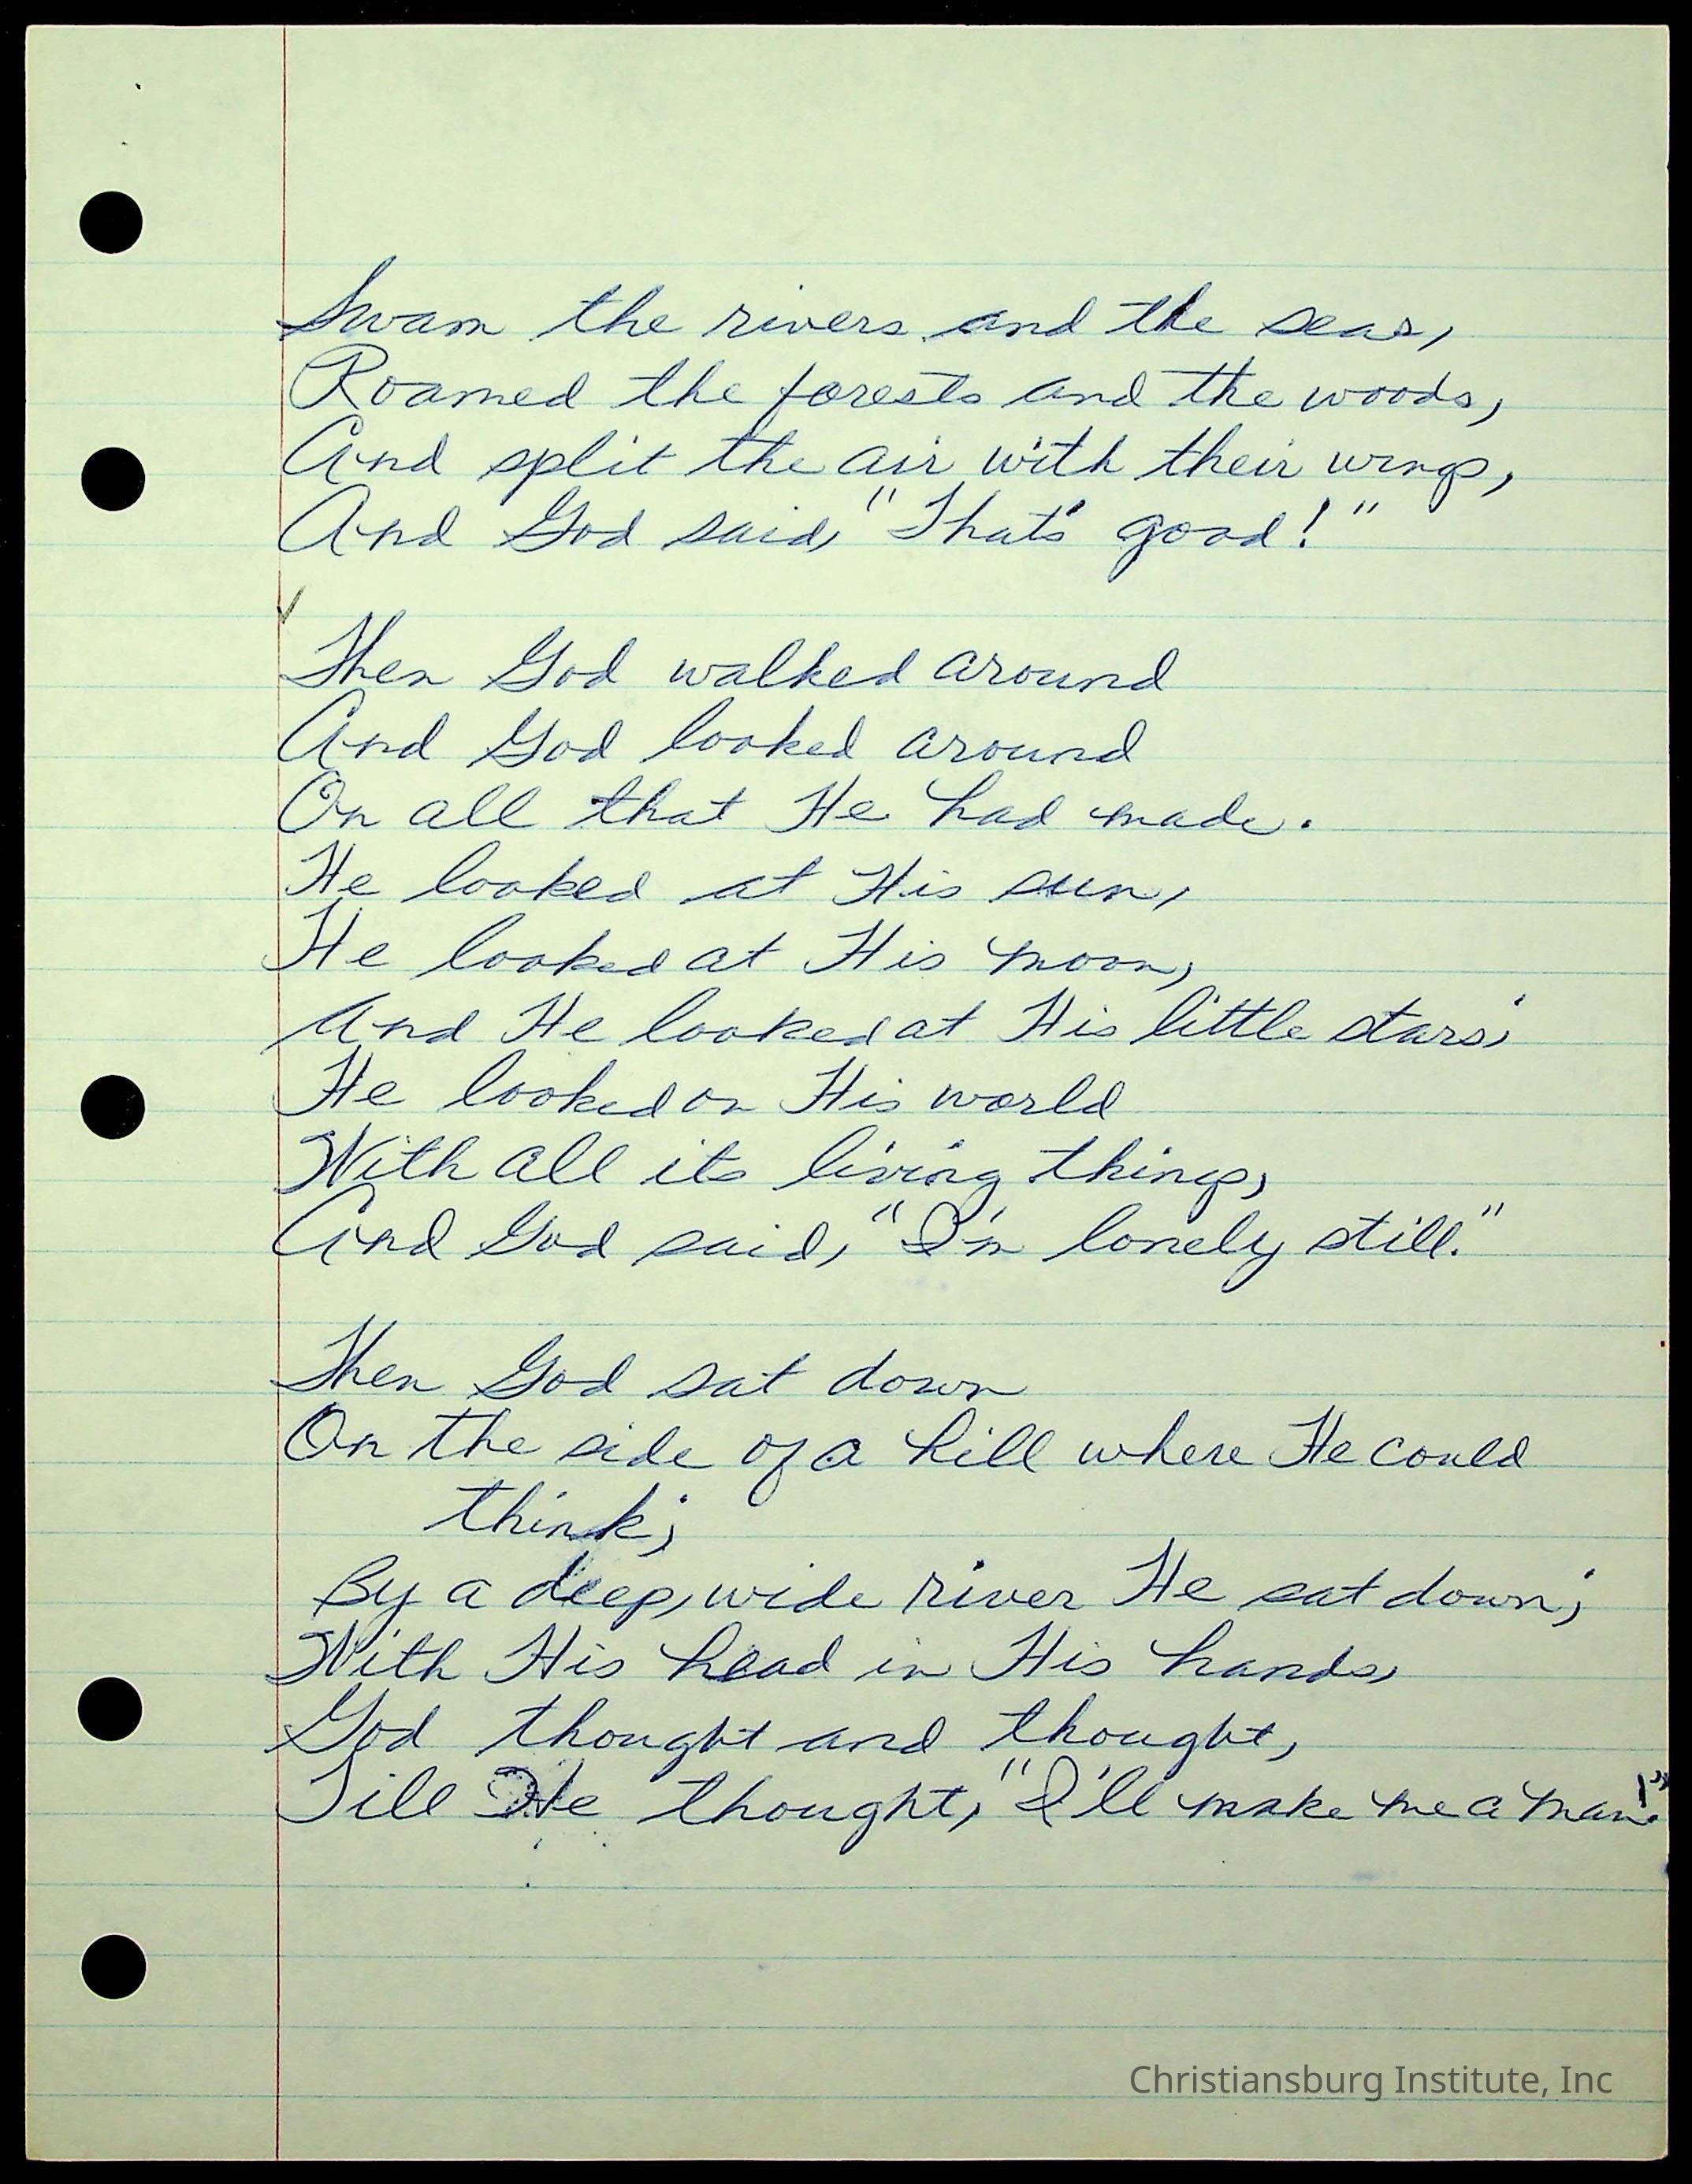 Swam the rivers and the seas,
Roamed the forests and the woods,
And split the air with their wings,
And God said, "That's good!"
Then God walked around
And God looked around
On all that He had made.
He looked at His sun,
He looked at His moon,
And He looked at His little stars;
He looked on His world
With all its living things,
And God said, "I'm lonely still."
Then God sat down
On the side of a hill where He could
think;
By a deep, wide river He sat down;
With His head in His hands,
God thought and thought,
Till He thought, "I'll make me a man!"
Christiansburg Institute, Inc